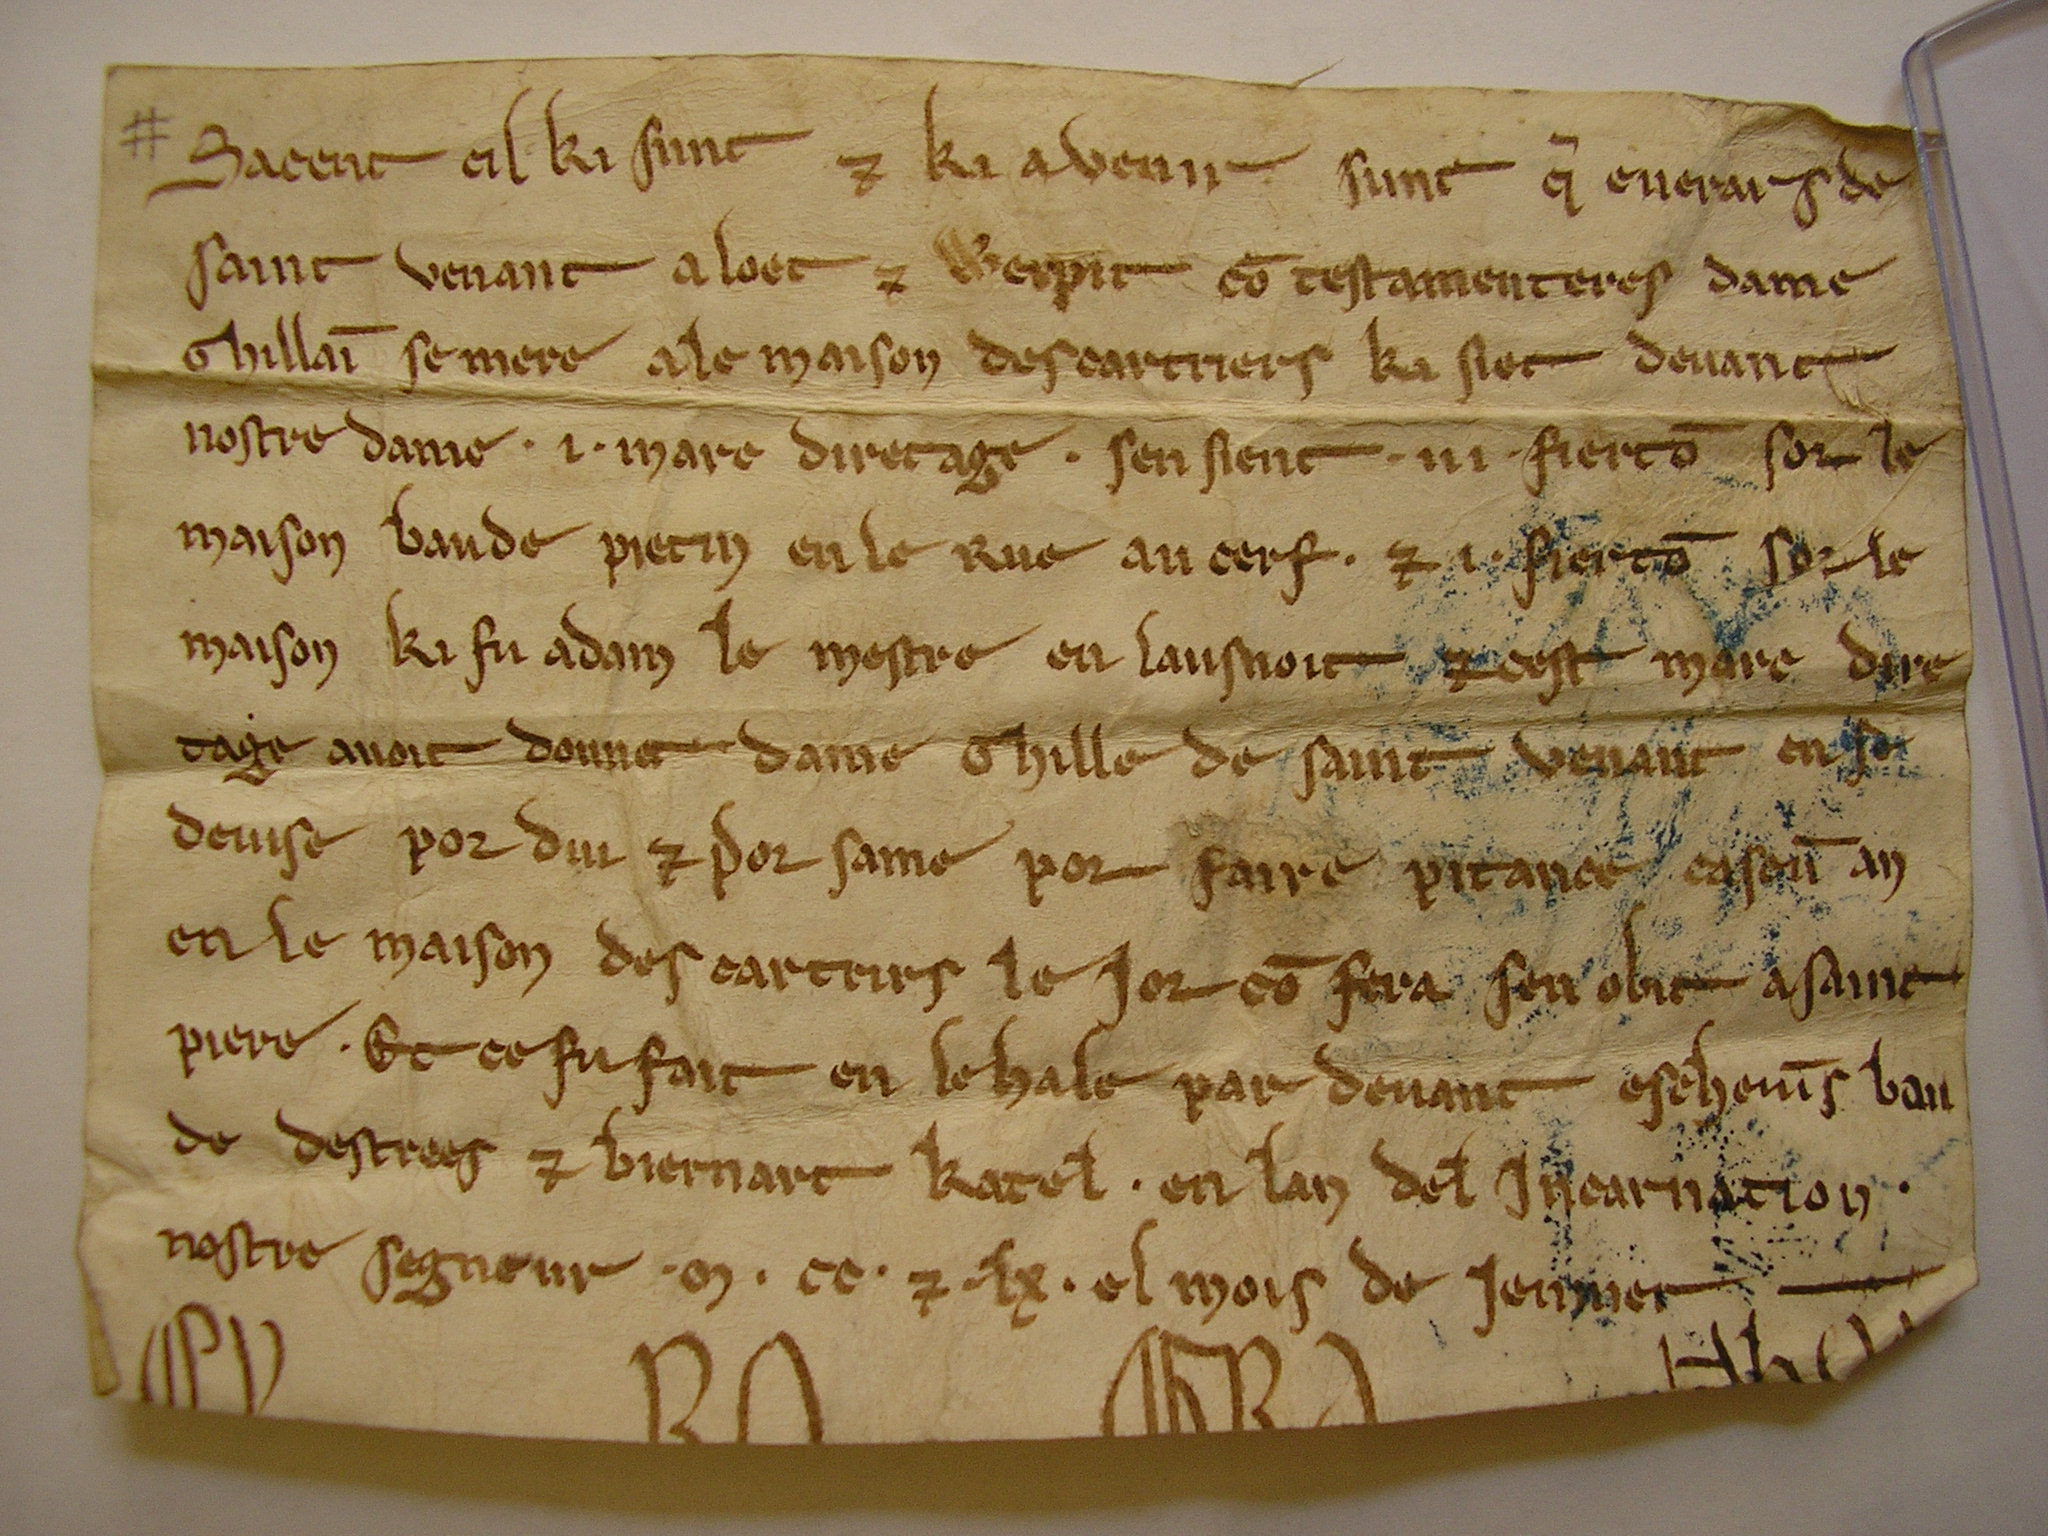 Sacent cil ki sunt ⁊ ki a venir sunt q̄ euerars de
saint venant a loet ⁊ Werpit cō testamenteres dame
Ghillaī se mere a le maison des cartriers ki siet deuant
nostre dame · i · marc diretage · sen sient · iii · fiertō sor le
maison baude pietin en le Rue au cerf · ⁊ · i · fiertō sor le
maison ki fu adam le mestre en lausnoit ⁊ cest marc dire
tage auoit donnet dame Ghille de saint venant en se
deuise por diu ⁊ por same por faire pitance cascū an
en le maison des cartrirs le Jor cō fera sen obit a saint
piere · Et ce fu fait en le hale par deuant escheuīs bau
de destrees ⁊ biernart katel · en lan del Incarnation ·
nostre segneur · m · cc · ⁊ · lx · el mois de Jenuier
CY RO GRA